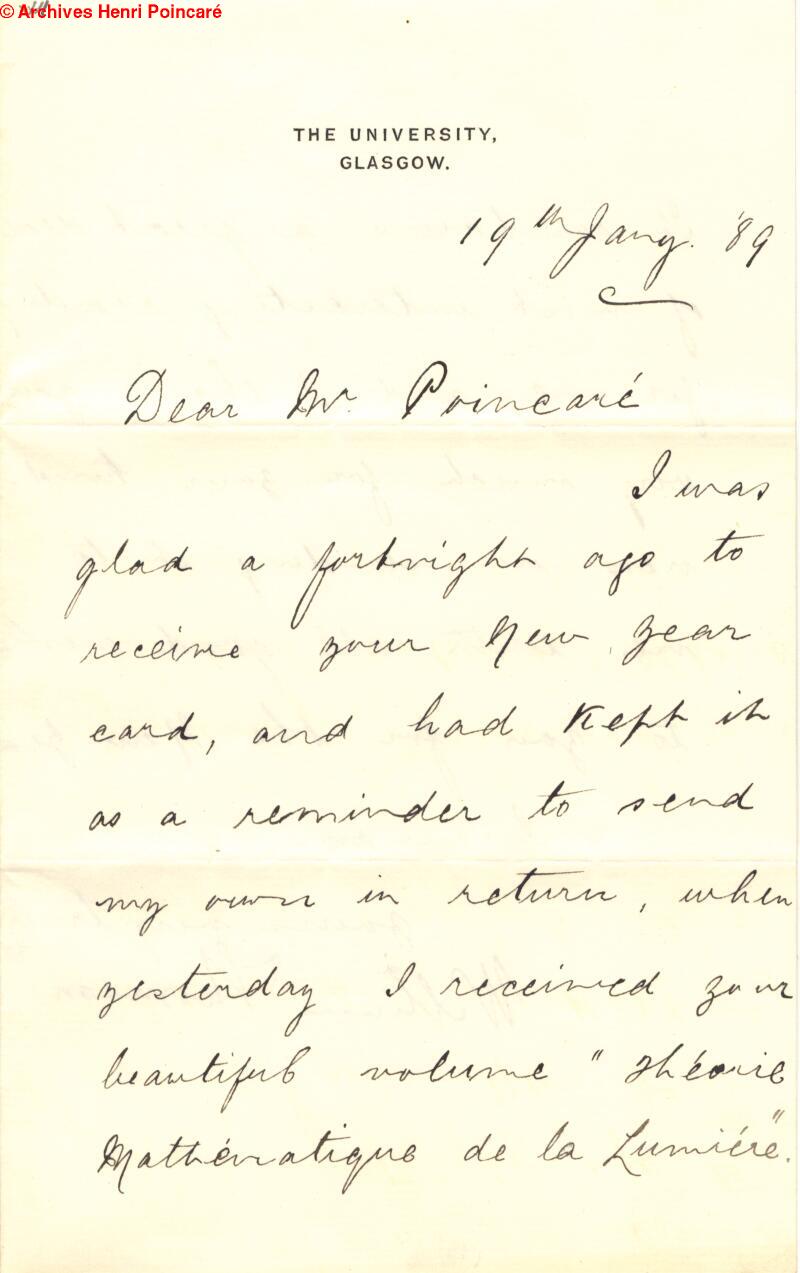 © Archives Henri Poincaré
THE UNIVERSITY,
GLASGOW.
19th Jany. '89
Dear Mr Poincaré
I was
glad a fortnight ago to
receive your New Year
card, and had kept it
as a reminder to send
my own in return, when
yesterday I received your
beautiful volume "Théorie
Mathématique de la Lumiére".